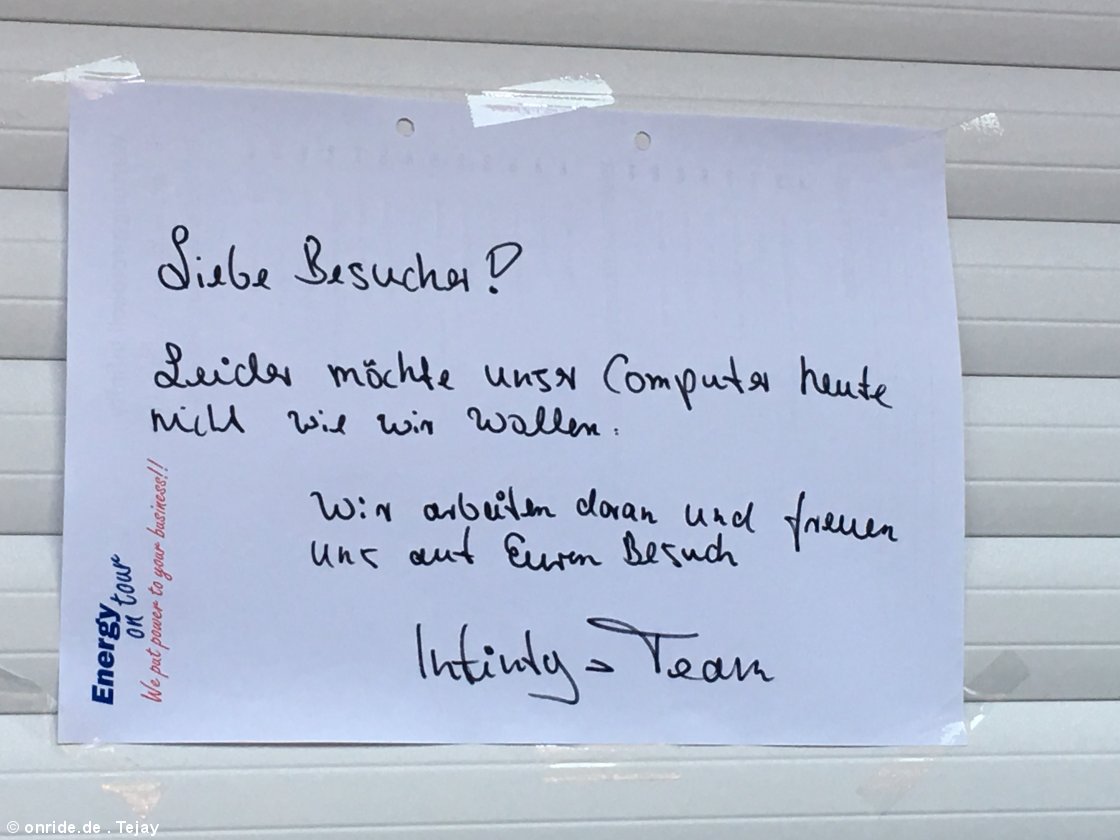 Liebe Besucher!
Leider möchte unser Computer heute
nicht wie wir wollen.
Wir arbeiten daran und freuen
uns auf Euren Besuch
Infinity-Team
Energy
on tour
We put power to your business!!
© onride.de . Tejay